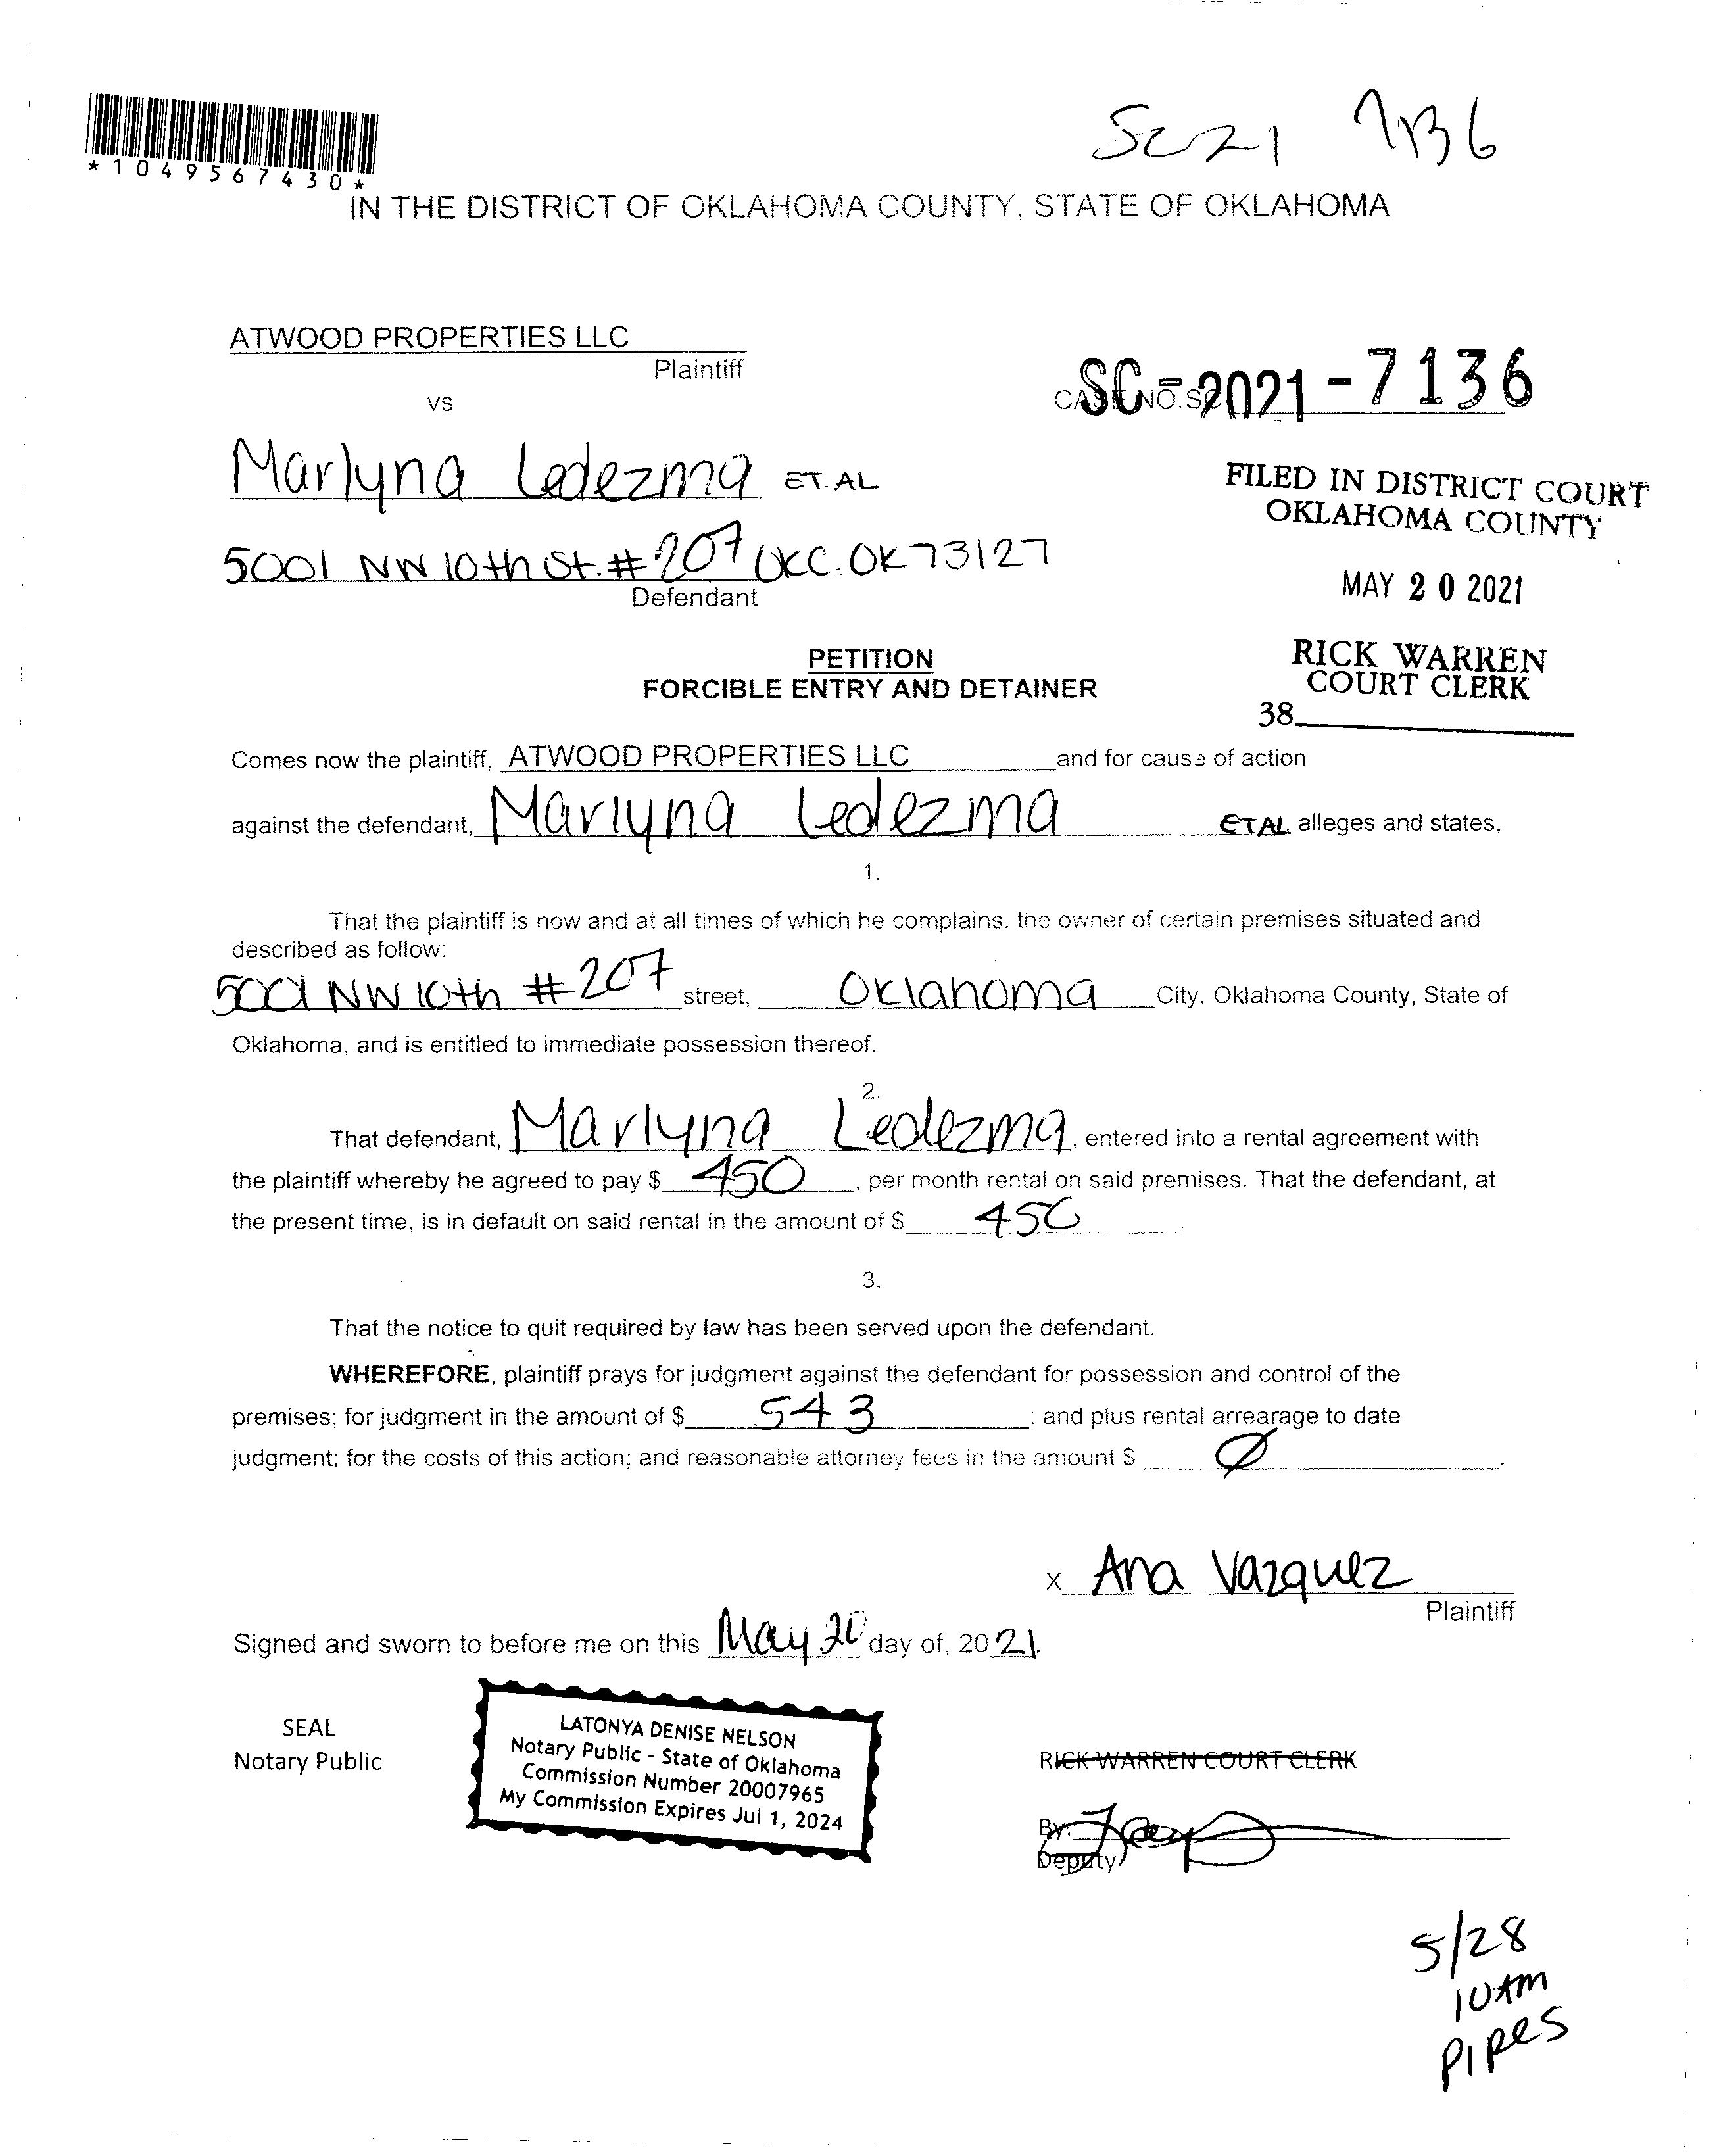 SC21 7136
*1049567430*
IN THE DISTRICT OF OKLAHOMA COUNTY, STATE OF OKLAHOMA
ATWOOD PROPERTIES LLC
Plaintiff
vs
CASE NO. SC SC-2021-7136
Marlyna Ledezma ET. AL
5001 NW 10th St. #207 OKC. OK 73127
Defendant
FILED IN DISTRICT COURT
OKLAHOMA COUNTY
MAY 20 2021
RICK WARREN
COURT CLERK
38
PETITION
FORCIBLE ENTRY AND DETAINER
Comes now the plaintiff, ATWOOD PROPERTIES LLC and for cause of action
against the defendant, Marlyna Ledezma ETAL alleges and states,
1.
That the plaintiff is now and at all times of which he complains, the owner of certain premises situated and
described as follow:
5001 NW 10th #207 street, Oklahoma City, Oklahoma County, State of
Oklahoma, and is entitled to immediate possession thereof.
2.
That defendant, Marlyna Ledezma, entered into a rental agreement with
the plaintiff whereby he agreed to pay $ 450, per month rental on said premises. That the defendant, at
the present time, is in default on said rental in the amount of $ 450.
3.
That the notice to quit required by law has been served upon the defendant.
WHEREFORE, plaintiff prays for judgment against the defendant for possession and control of the
premises; for judgment in the amount of $ 543; and plus rental arrearage to date
judgment; for the costs of this action; and reasonable attorney fees in the amount $ Ø.
x Ana Vazquez
Plaintiff
Signed and sworn to before me on this May 20 day of, 2021.
SEAL
Notary Public
LATONYA DENISE NELSON
Notary Public - State of Oklahoma
Commission Number 20007965
My Commission Expires Jul 1, 2024
RICK WARREN COURT CLERK
By:
Deputy
5/28
10AM
PIPES